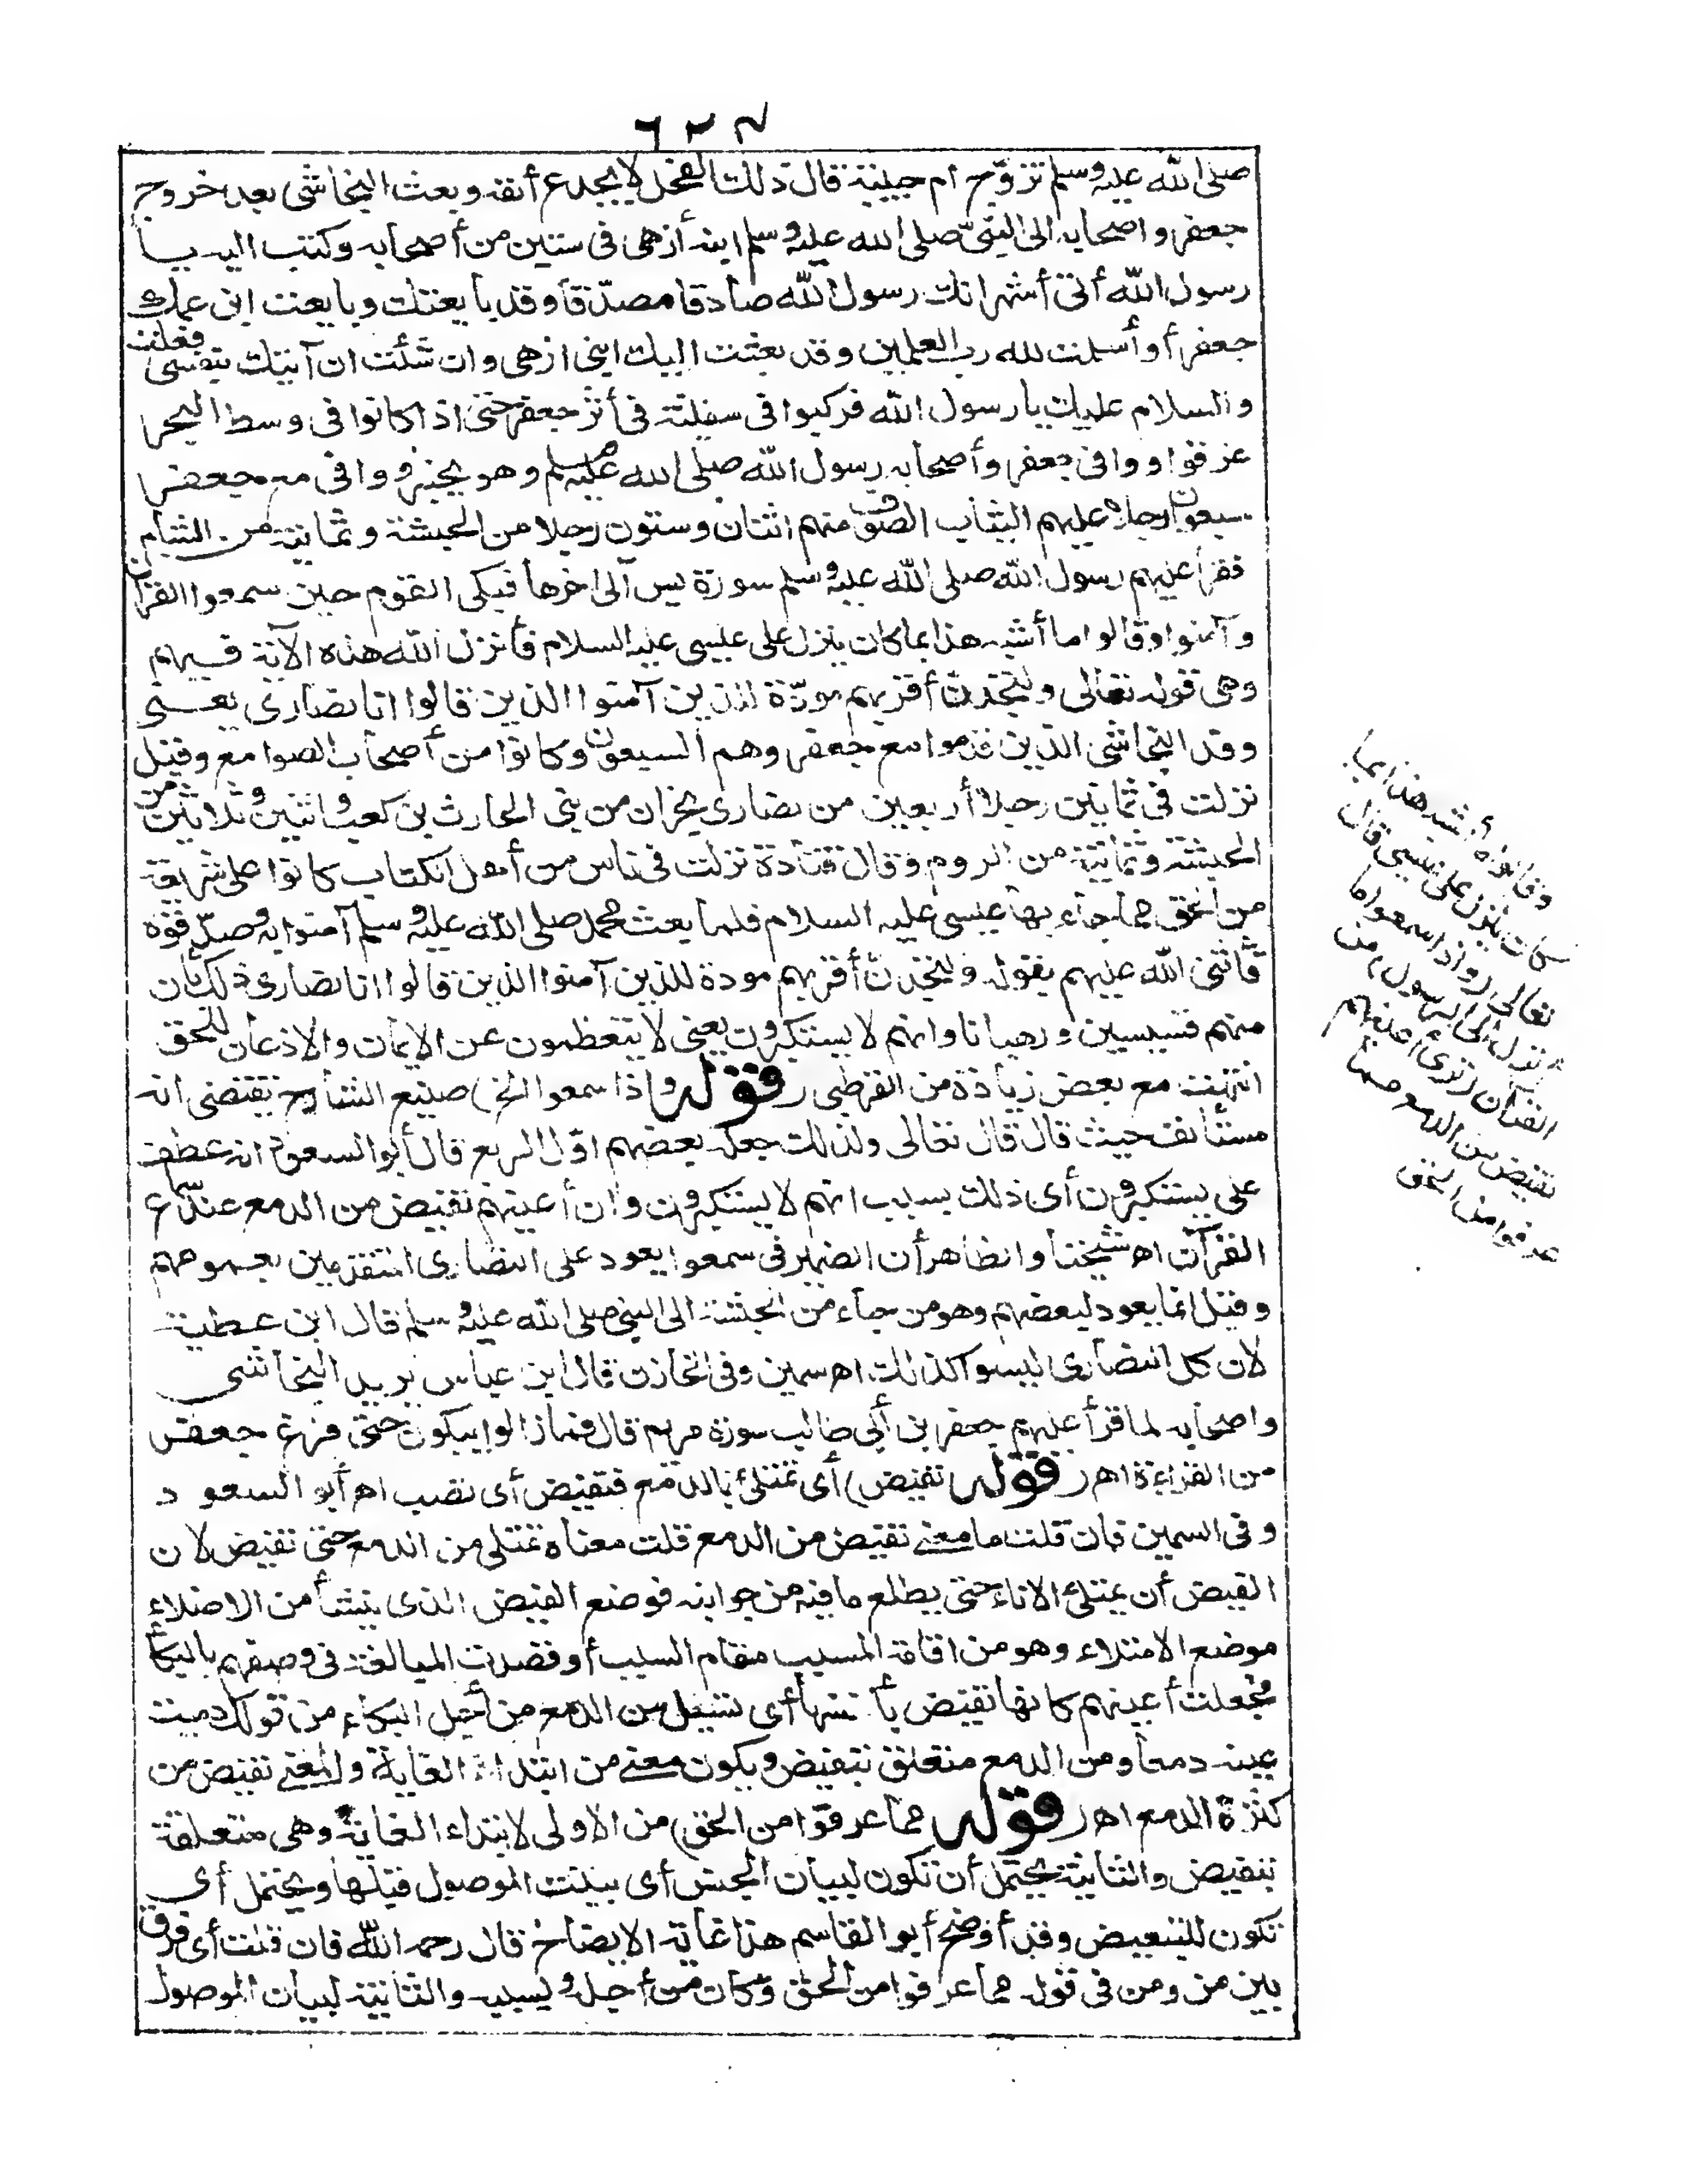 ٦٢٧
صلى الله عليه وسلم تزوج أم حبيبة قال ذلك الفحل لا يجدع أنفه وبعث النجاشى بعد خروج
جعفر واصحابه الى النبى صلى الله عليه وسلم ابنه أزهى فى ستين من أصحابه وكتب اليه يا
رسول الله أنى أشهد انك رسول الله صادقا مصدّقا وقد بايعتك وبايعت ابن عمك
جعفر أو أسلمت لله رب العلمين وقد بعثت اليك ابنى ازهى وان شئت ان آتيك بنفسى فعلت
والسلام عليك يا رسول الله فركبوا فى سفينة فى أثر جعفر حتى اذا كانوا فى وسط البحر
غرقوا ووافى جعفر وأصحابه رسول الله صلى الله عليه وسلم وهو بخيبر ووافى مع جعفر
سبعون رجلا عليهم الثياب الصوف منهم اثنان وستون رجلا من الحبشة وثمانية من الشام
فقرأ عليهم رسول الله صلى الله عليه وسلم سورة يس الى اخرها فبكى القوم حين سمعوا القرآن
وآمنوا وقالوا ما أشبه هذا بما كان ينزل على عيسى عليه السلام فأنزل الله هذه الآية فيهم
وهى قوله تعالى ولتجدنّ أقربهم مودّة للذين آمنوا الذين قالوا انا نصارى يعنى
وفد النجاشى الذين قدموا مع جعفر وهم السبعون وكانوا من أصحاب الصوامع وقيل
نزلت فى ثمانين رجلا أربعين من نصارى نجران من بنى الحارث بن كعب واثنين وثلاثين من
الحبشة وثمانية من الروم وقال قتادة نزلت فى ناس من أهل الكتاب كانوا على شريعة
من الحق مما جاء بها عيسى عليه السلام فلما بعث محمد صلى الله عليه وسلم آمنوا به وصدّقوه
فأثنى الله عليهم بقوله ولتجدنّ أقربهم مودة للذين آمنوا الذين قالوا انا نصارى ذلك بأن
منهم قسيسين ورهبانا وانهم لا يستكبرون يعنى لا يتعظمون عن الايمان والاذعان للحق
انتهت مع بعض زيادة من القرطبى (قوله واذا سمعوا الخ) صنيع الشارح يقتضى انه
مستأنف حيث قال قال تعالى ولذلك جعله بعضهم اوّل الربع قال أبو السعود انه عطف
على يستكبرون أى ذلك بسبب انهم لا يستكبرون وان أعينهم تفيض من الدمع عند سماع
القرآن اه شيخنا والظاهر أن الضمير فى سمعوا يعود على النصارى المتقدمين بعمومهم
وقيل انما يعود لبعضهم وهو من جاء من الحبشة الى النبى صلى الله عليه وسلم قال ابن عطية
لان كل النصارى ليسوا كذلك اه سمين وفى الخازن قال ابن عباس يريد النجاشى
واصحابه لما قرأ عليهم جعفر بن أبى طالب سورة مريم قال فما زالوا يبكون حتى فرغ جعفر
من القراءة اه (قوله تفيض) أى تمتلئ بالدمع فتفيض أى تصب اه أبو السعود
وفى السمين فان قلت ما معنى تفيض من الدمع قلت معناه تمتلى من الدمع حتى تفيض لان
الفيض أن يمتلئ الاناء حتى يطلع ما فيه من جوانبه فوضع الفيض الذى ينشأ من الامتلاء
موضع الامتلاء وهو من اقامة المسبب مقام السبب أو قصدت المبالغة فى وصفهم بالبكاء
فجعلت أعينهم كانها تفيض بأنفسها أى تسيل من الدمع من أجل البكاء من قولك دمعت
عينه دمعا ومن الدمع متعلق بتفيض ويكون معنى من ابتداء الغاية والمعنى تفيض من
كثرة الدمع اه (قوله مما عرفوا من الحق) من الاولى لابتداء الغاية وهى متعلقة
بتفيض والثانية يحتمل أن تكون لبيان الجنس أى بينت الموصول قبلها ويحتمل أى
تكون للتبعيض وقد أوضح أبو القاسم هذا غاية الايضاح قال رحمه الله فان قلت أى فرق
بين من ومن فى قوله مما عرفوا من الحق وكان من أجله وبسببه والثانية لبيان الموصول
وقالوا ما أشبه هذا بما
كان ينزل على عيسى قال
تعالى (واذا سمعوا ما
أنزل الى الرسول) من
القرآن (ترى أعينهم
تفيض من الدمع مما
عرفوا من الحق